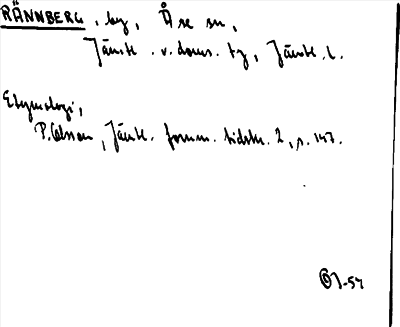 RÄNNBERG, by, Åse sn,
Jämtl. v. doms. tg, Jämtl. l.
Etymologi,
P. Olsson, Jämtl. fornm. tidskr. 2, s. 147.
-54